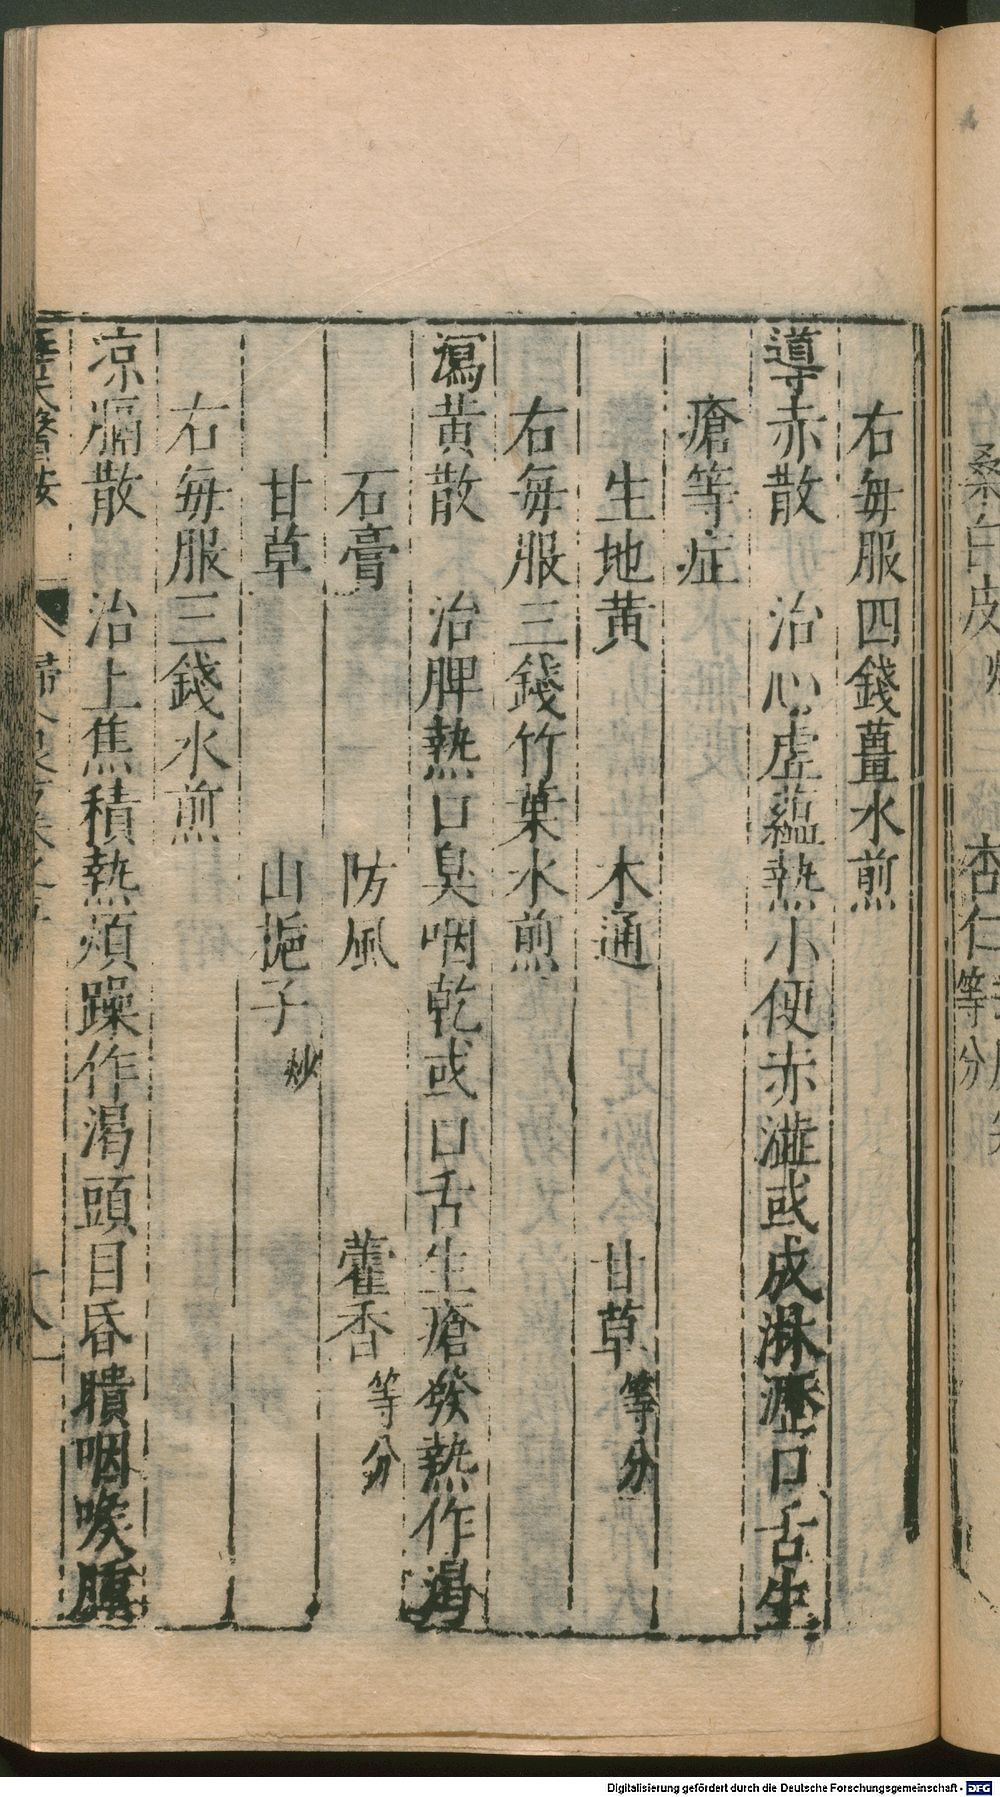 桑白皮
杏仁等分
右每服四錢薑水煎
導赤散　治心虛蘊熱小便赤澁或成淋瀝口舌生
瘡等症
生地黄　木通　甘草等分
右每服三錢竹葉水煎
瀉黄散　治脾熱口臭咽乾或口舌生瘡發熱作渴
石膏　防風　藿香等分
甘草　山梔子炒
右每服三錢水煎
凉膈散　治上焦積熱煩躁作渴頭目昏聵咽喉腫
Digitalisierung gefördert durch die Deutsche Forschungsgemeinschaft - DFG